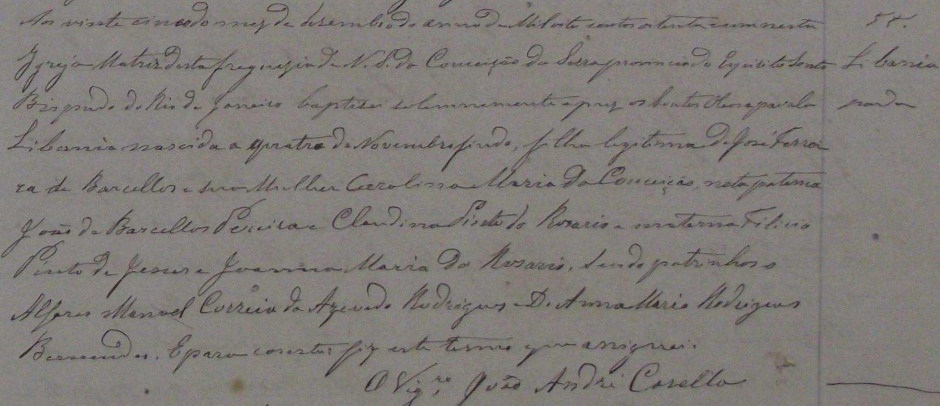 Aos vinte cinco do mez de dezembro do anno de Mil oito centos oitenta e um nesta
Igreja Matriz desta freguezia de N. S. da Conceição da Serra provincia do Espirito Santo
Bispado do Rio de Janeiro baptizei solemnemente e puz os Santos Oleos a parvola
Libania nascida a quatro de Novembro findo, filha legitima de José Ferrei
ra de Barcellos e sua Mulher Carolina Maria da Conceição, neta paterna
João de Barcellos Pereira e Claudina Pinto do Rosario e materna
Pinto de Jesus e Joanna Maria do Rosario. Sendo padrinhos o
Alferes Manoel Corrêia de Azevedo Rodrigues e D. Anna Maria Rodrigues
Bermudes. E para constar fiz este termo que assignei.
O Vigro. João André Casella
Libania
parda